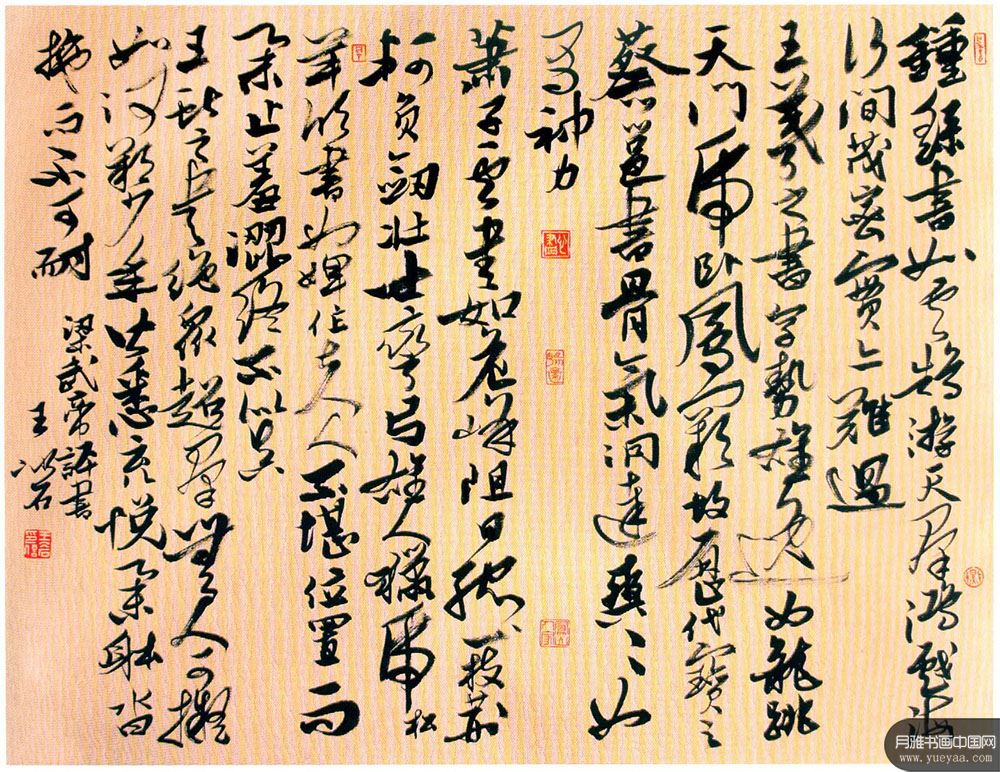 鍾繇書如雲鵠游天群鴻戲海
行間茂密實亦難過
王羲之書字勢雄逸如龍跳
天門虎卧鳳闕故歷代寶之
蔡邕書骨氣洞達爽爽如
有神力
蕭子雲書如危峰阻日孤一枝荊
柯負劍壯士彎弓雄人獵虎松
羊欣書如婢作夫人不堪位置而
舉止羞澀終不似真
王獻之書絕眾超群無人可擬
如河朔少年皆悉充悅舉體沓
拖而不可耐
梁武帝評書
王石
月雅书画中国网
www.yueyaa.com